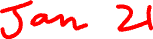 Jan 21